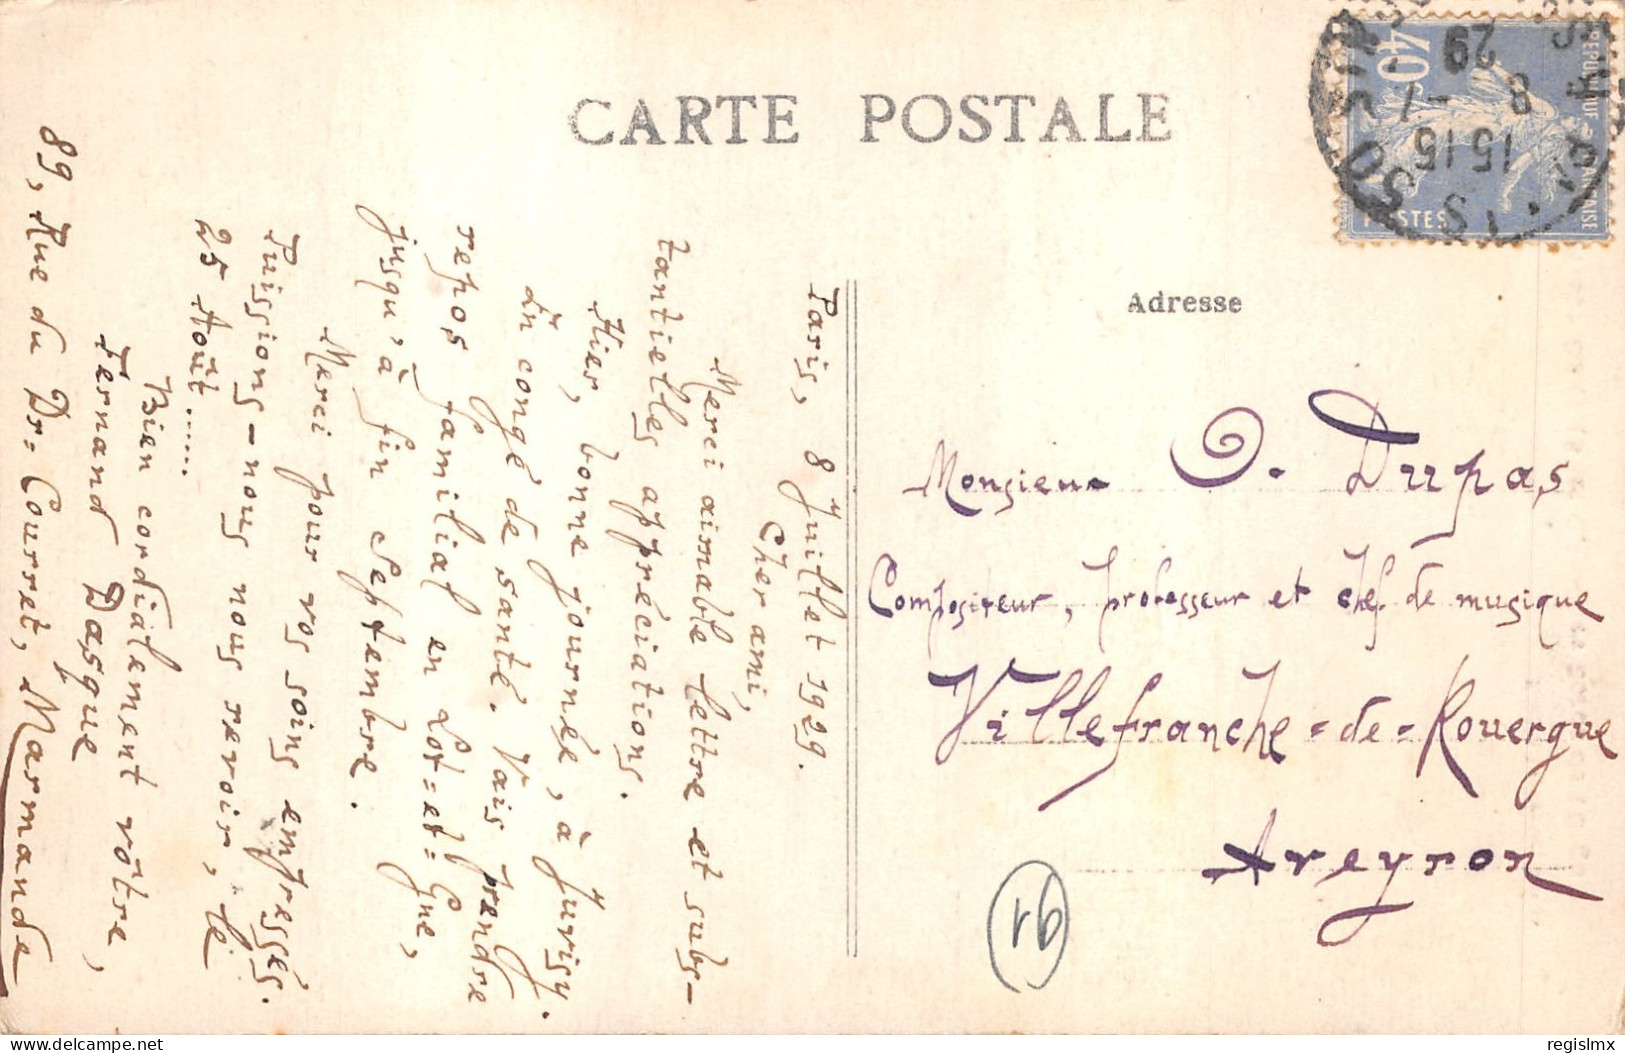 CARTE POSTALE
Adresse
Paris, 8 Juillet 1929.
Cher ami,
Merci aimable lettre et subs-
tantielles appréciations.
Hier, bonne journée, à Juvisy.
En congé de santé. Vais prendre
repos familial en Lot=et=Gne,
jusqu'à fin Septembre.
Merci pour vos soins empressés.
Puissions-nous nous revoir, le
25 Août......
Bien cordialement vôtre,
Fernand Dasque,
89, Rue du Dr= Courret, Marmande
Monsieur O. Dupas
Compositeur, professeur et chef de musique
Villefranche=de=Rouergue
Aveyron
91
REPUBLIQUE FRANÇAISE
40c
POSTES
15 15
8 - 7
29
delcampe.net
regislmx